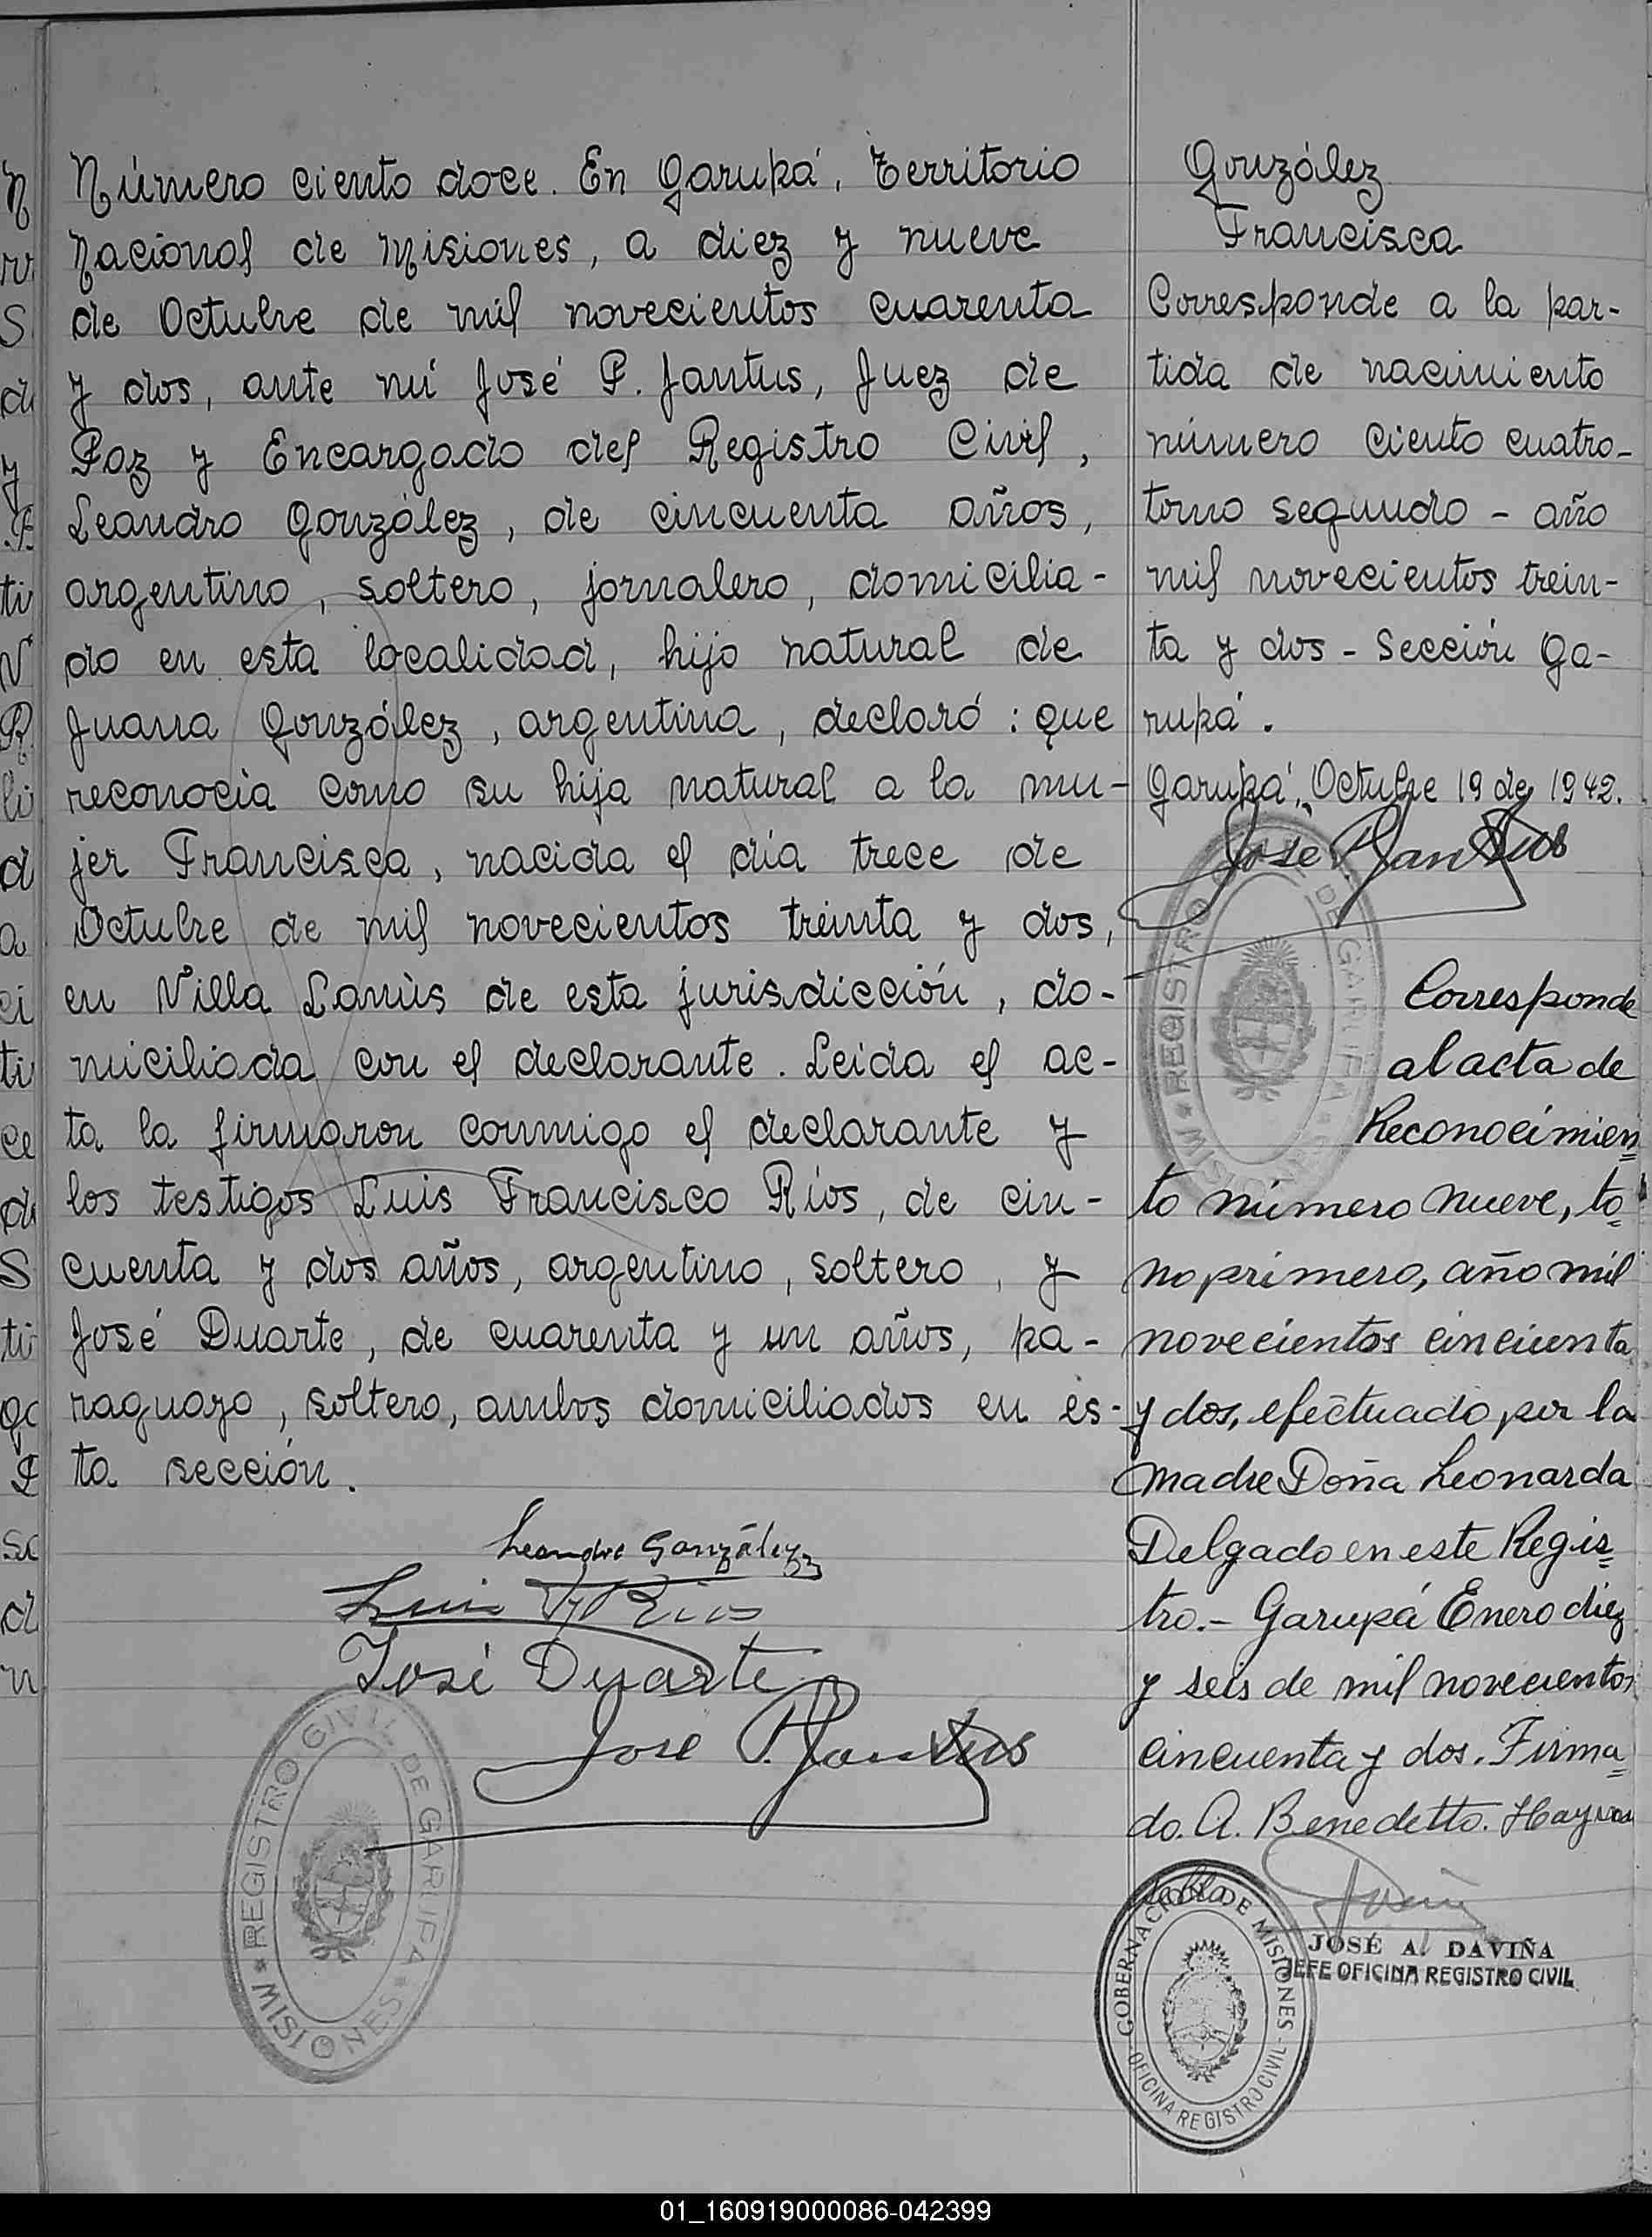 Número ciento doce. En Garupá, Territorio
Nacional de Misiones, a diez y nueve
de Octubre de mil novecientos cuarenta
y dos, ante mí José P. Jantus, Juez de
Paz y Encargado del Registro Civil,
Leandro González, de cincuenta años,
argentino, soltero, jornalero, domicilia-
do en esta localidad, hijo natural de
Juana González, argentina, declaró: que
reconocía como su hija natural a la mu-
jer Francisca, nacida el día trece de
Octubre de mil novecientos treinta y dos,
en Villa Lanús de esta jurisdicción, do-
miciliada con el declarante. Leída el ac-
ta la firmaron conmigo el declarante y
los testigos Luis Francisco Ríos, de cin-
cuenta y dos años, argentino, soltero, y
José Duarte, de cuarenta y un años, pa-
raguayo, soltero, ambos domiciliados en es-
ta sección.
Leandro González
Luis F. Rios
José Duarte
José P. Jantus
REGISTRO CIVIL DE GARUPA * MISIONES *
González
Francisca
Corresponde a la par-
tida de nacimiento
número ciento cuatro-
tomo segundo - año
mil novecientos trein-
ta y dos - Sección Ga-
rupá.
Garupá, Octubre 19 de 1942.
José P. Jantus
REGISTRO DE GARUPA * MISIONES *
Corresponde
al acta de
Reconocimien=
to número nueve, to=
mo primero, año mil
novecientos cincuenta
y dos, efectuado por la
madre Doña Leonarda
Delgado en este Regis=
tro.- Garupá Enero diez
y seis de mil novecientos
cincuenta y dos. Firma=
do. A. Benedetto. Hay un
sello
JOSÉ A. DAVIÑA
JEFE OFICINA REGISTRO CIVIL
GOBERNACION DE MISIONES - OFICINA REGISTRO CIVIL -
01_160919000086-042399